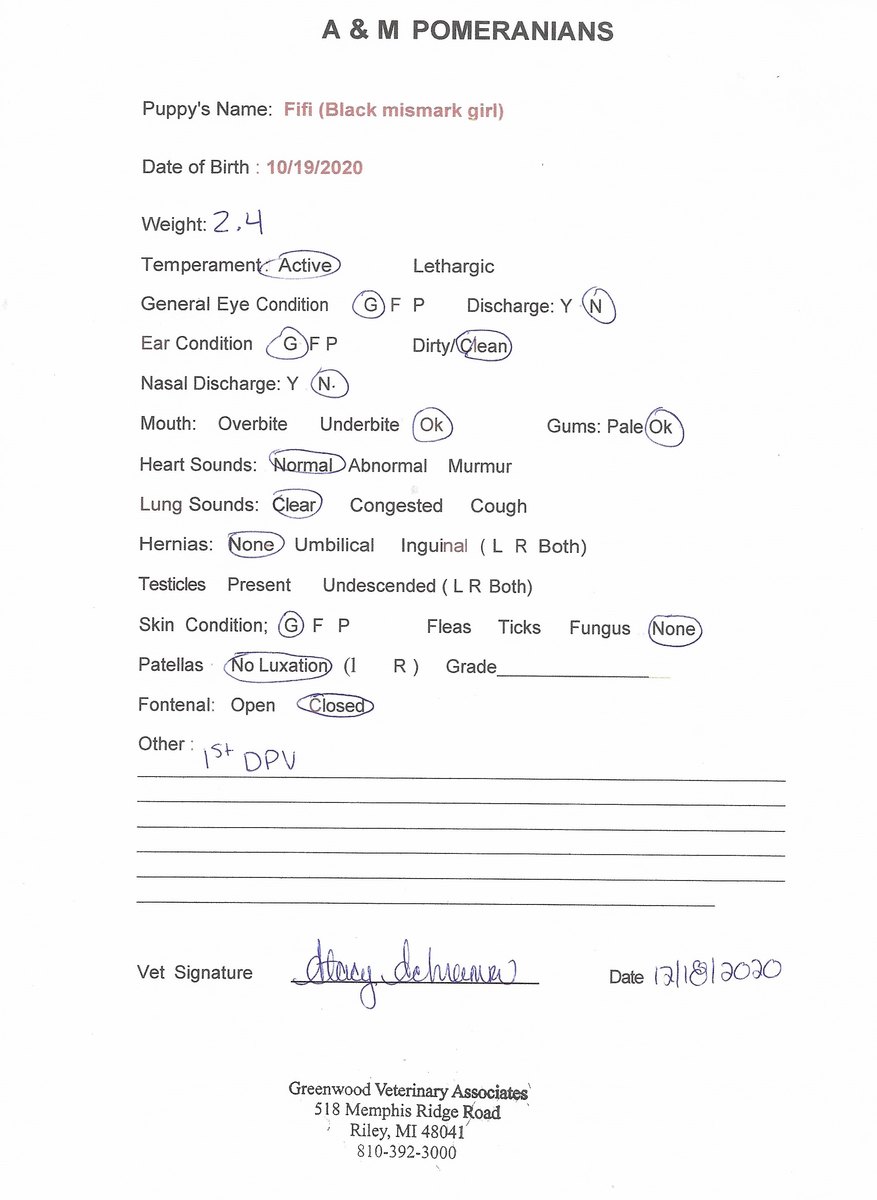 A & M POMERANIANS
Puppy's Name: Fifi (Black mismark girl)
Date of Birth : 10/19/2020
Weight: 2.4
Temperament: Active Lethargic
General Eye Condition G F P Discharge: Y N
Ear Condition G F P Dirty/Clean
Nasal Discharge: Y N
Mouth: Overbite Underbite Ok Gums: Pale Ok
Heart Sounds: Normal Abnormal Murmur
Lung Sounds: Clear Congested Cough
Hernias: None Umbilical Inguinal ( L R Both)
Testicles Present Undescended ( L R Both)
Skin Condition; G F P Fleas Ticks Fungus None
Patellas No Luxation (l R ) Grade
Fontenal: Open Closed
Other : 1st DPV
Vet Signature Stacy Date 12/18/2020
Greenwood Veterinary Associates
518 Memphis Ridge Road
Riley, MI 48041
810-392-3000